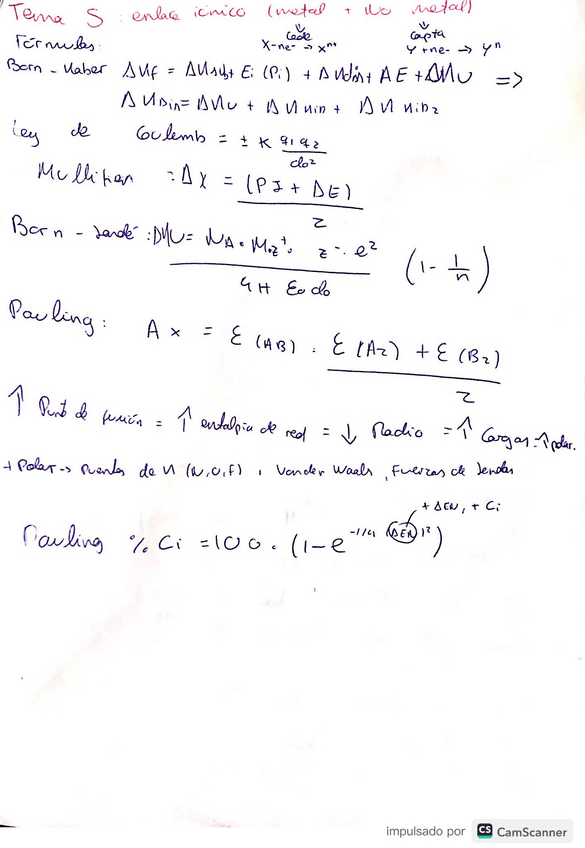 Tema 5: enlace iónico (metal + No metal)
Cede Capta
Fórmulas: X-ne- → Xⁿ⁺ Y+ne- → Yⁿ
Born-Haber ΔHf = ΔHsub + Ei (Pi) + ΔHdis + AE + ΔHU =>
ΔHDin = ΔHU + ΔH Hin + ΔH Hin2
Ley de Coulomb = ± K q1 q2
do²
Mulliken : ΔX = (PI + ΔE)
2
Born-Landé: ΔHU = NA · M · z⁺ · z⁻ · e² (1 - 1/n)
4π Eo do
Pauling: Δx = E (AB) · E (A2) + E (B2)
2
↑ Punto de fusión = ↑ entalpia de red = ↓ Radio = ↑ Cargas = ↑ polar.
+ Polar → Puentes de H (N, O, F), Van der Waals, Fuerzas de
+ ΔEN, + Ci
Pauling % Ci = 100 · (1-e -1/4 (ΔEN)²)
impulsado por CS CamScanner